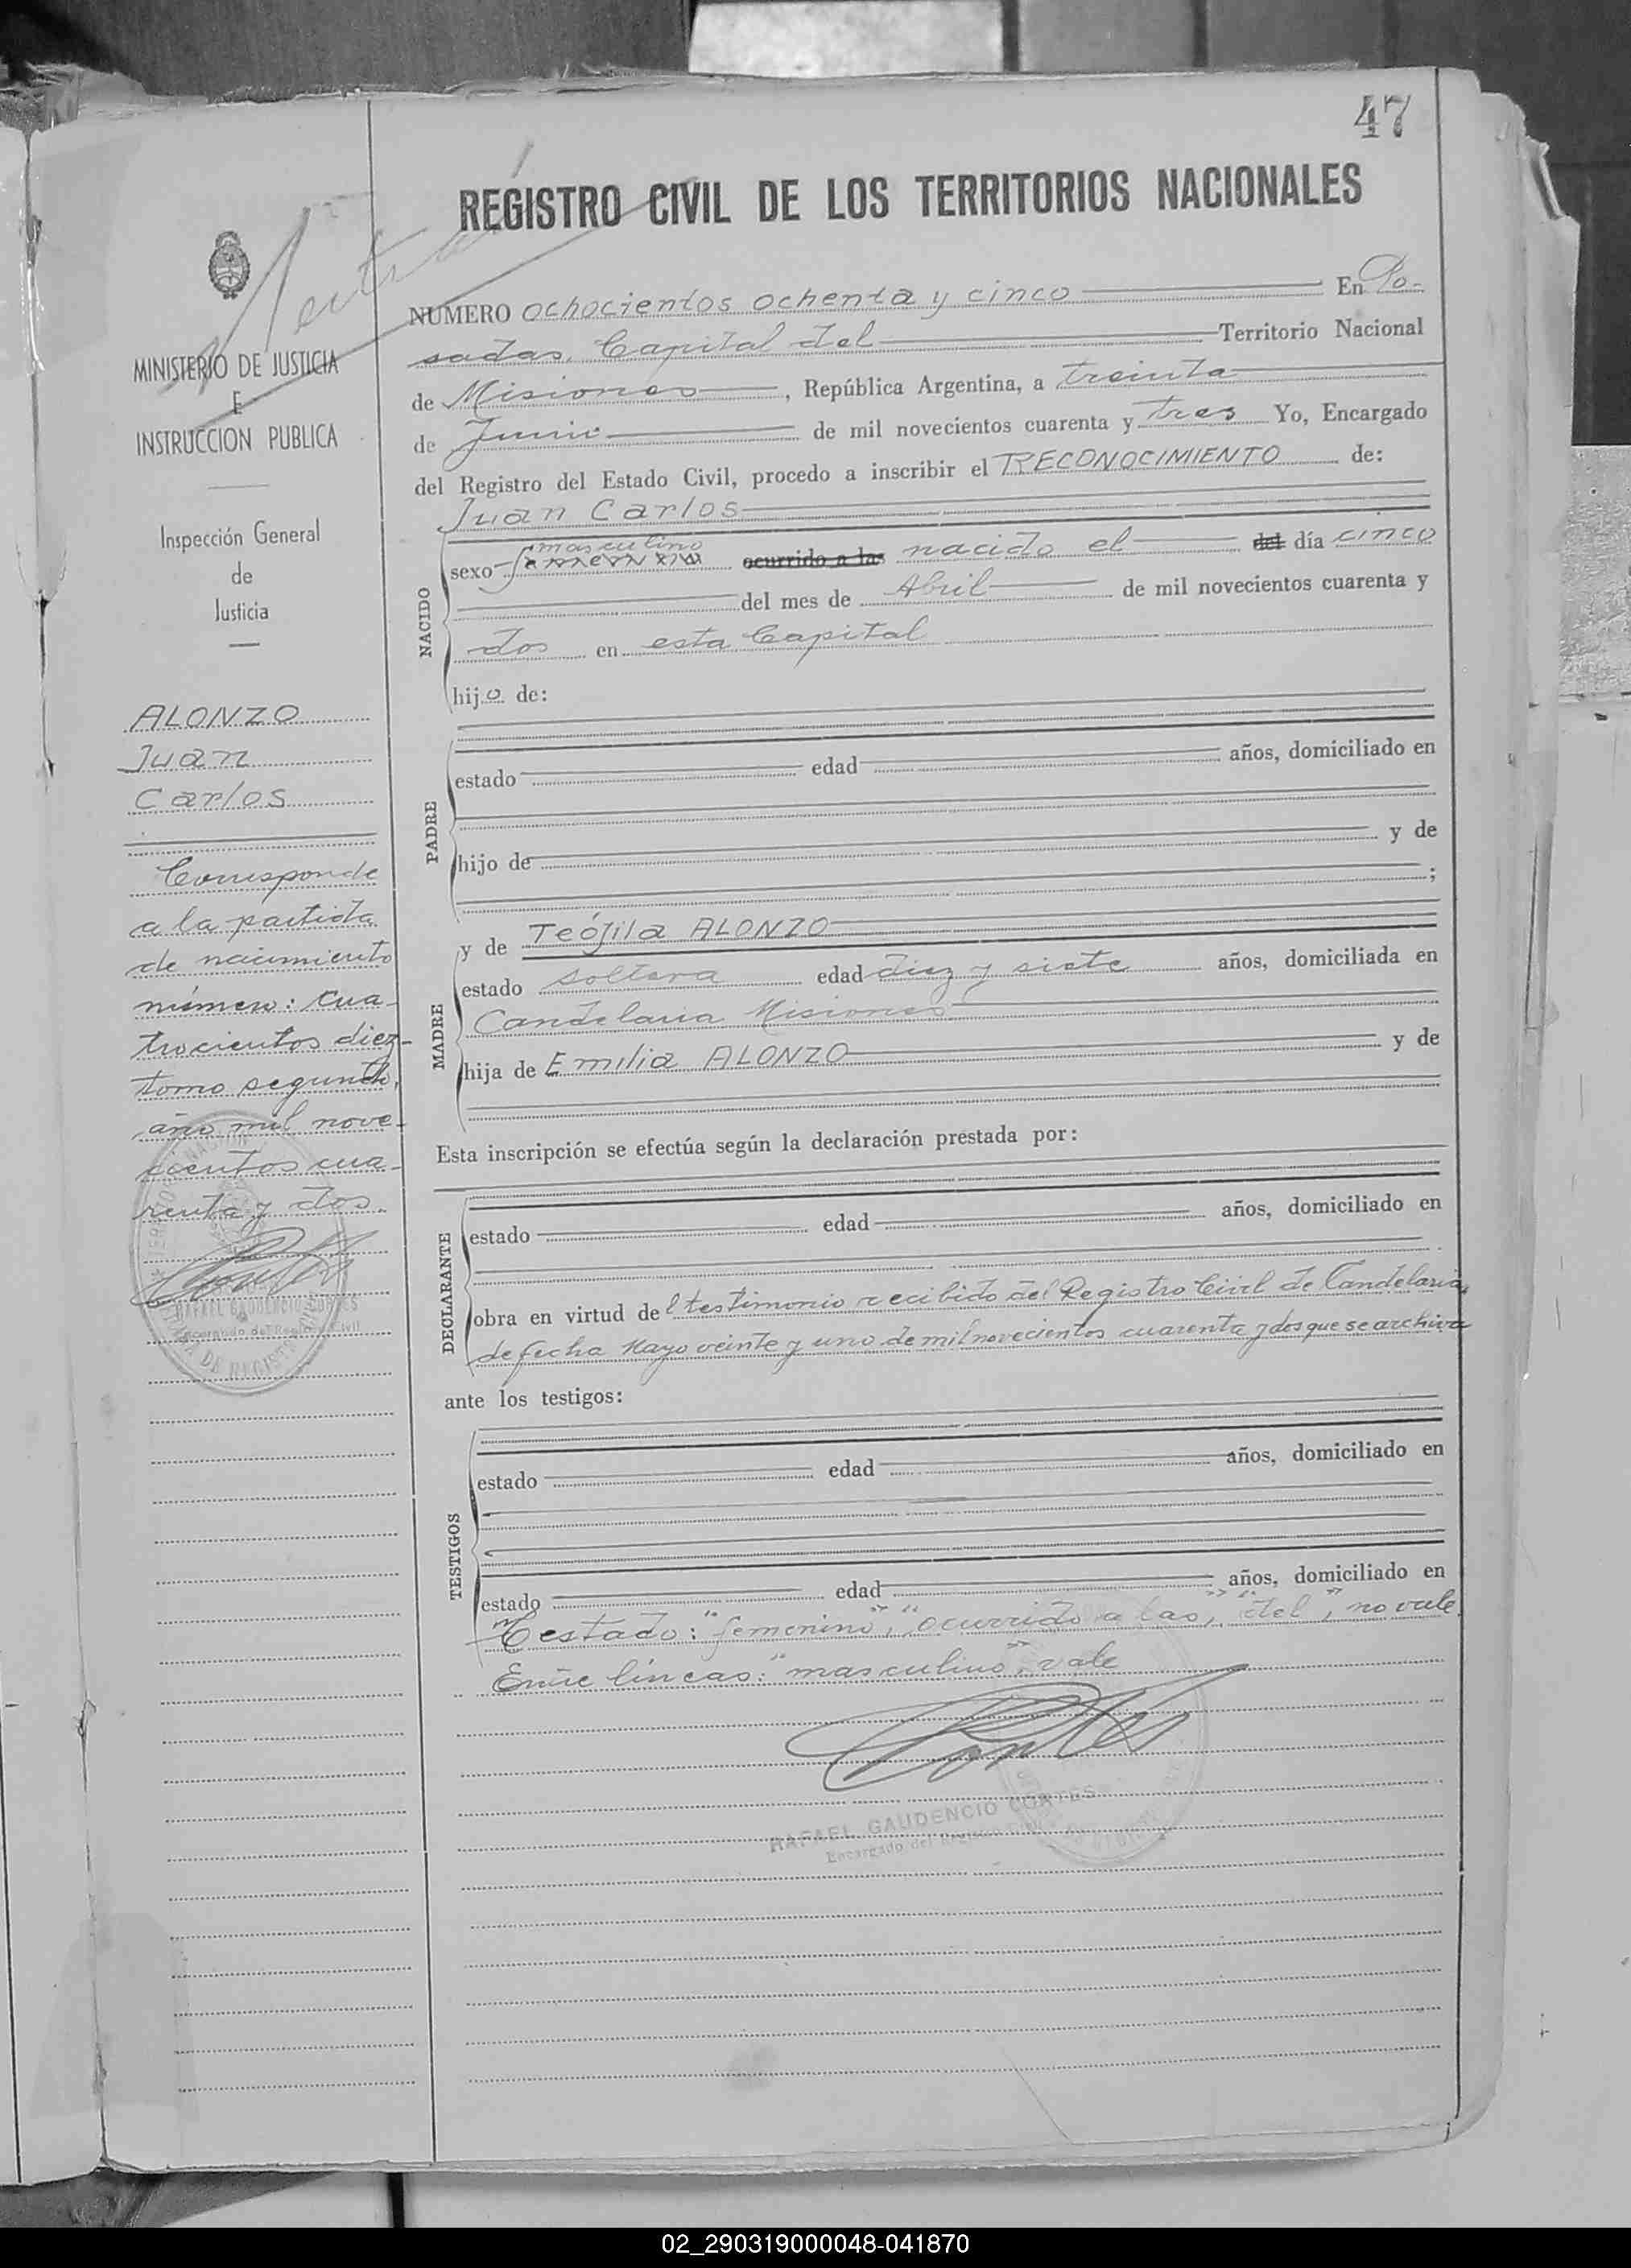 47
REGISTRO CIVIL DE LOS TERRITORIOS NACIONALES
NUMERO ochocientos ochenta y cinco En Po-
sadas, Capital del Territorio Nacional
de Misiones, República Argentina, a treinta
de Junio de mil novecientos cuarenta y tres Yo, Encargado
del Registro del Estado Civil, procedo a inscribir el RECONOCIMIENTO de:
Juan Carlos
masculino
sexo femenino ocurrido a las nacido el del día cinco
del mes de Abril de mil novecientos cuarenta y
dos en esta Capital
NACIDO
hijo de:
estado edad años, domiciliado en
PADRE
hijo de y de
;
y de Teófila ALONZO
estado soltera edad diez y siete años, domiciliada en
Candelaria Misiones
MADRE
hija de Emilia ALONZO y de
Esta inscripción se efectúa según la declaración prestada por:
estado edad años, domiciliado en
DECLARANTE
obra en virtud del testimonio recibido del Registro Civil de Candelaria,
de fecha Mayo veinte y uno de mil novecientos cuarenta y dos que se archiva
ante los testigos:
estado edad años, domiciliado en
TESTIGOS
estado edad años, domiciliado en
Testado: "femenino", "ocurrido a las", "del", no vale.
Entre líneas: "masculino", vale
Cortes
RAFAEL GAUDENCIO CORTES
Encargado del Registro Civil
MINISTERIO DE JUSTICIA
E
INSTRUCCION PUBLICA
Inspección General
de
Justicia
ALONZO
Juan
Carlos
Corresponde
a la partida
de nacimiento
número: cua-
trocientos diez-
tomo segundo,
año mil nove-
cientos cua-
renta y dos.
RAFAEL GAUDENCIO CORTES
Encargado del Registro Civil
02_290319000048-041870